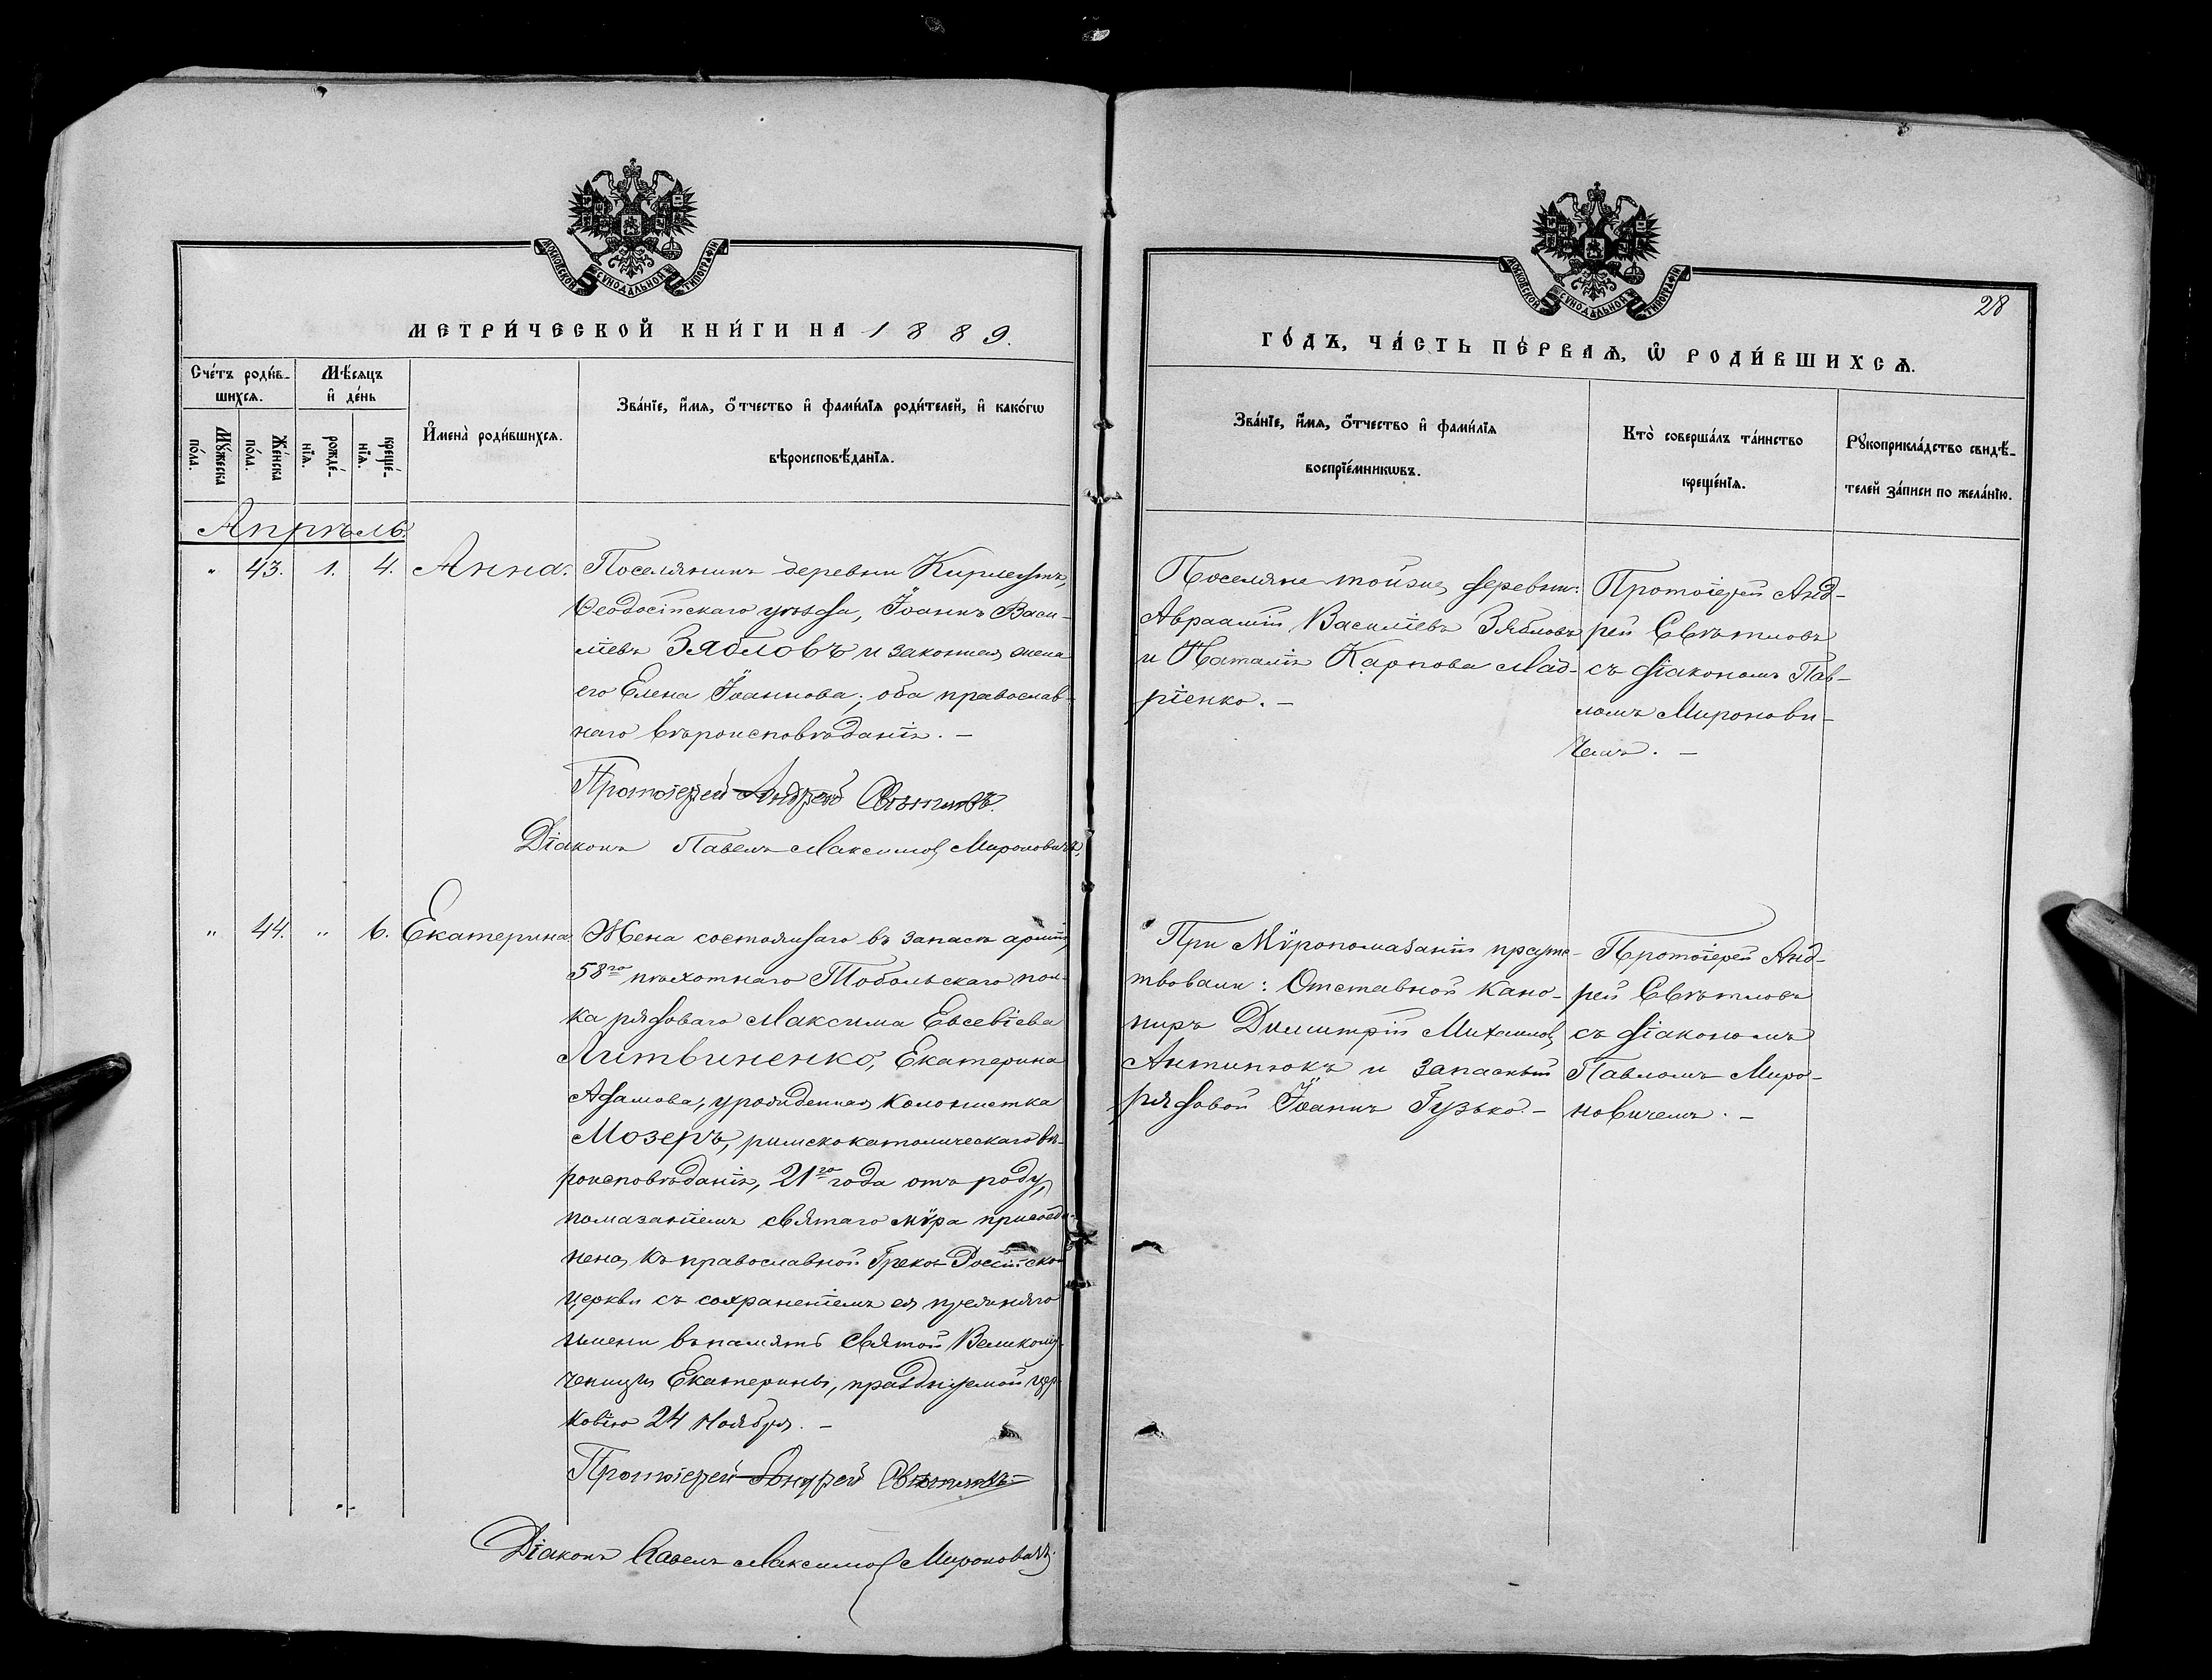 МОСКОВСКОЙ СѴНОДАЛЬНОЙ ТИПОГРАФІИ
МЕТРИ́ЧЕСКОЙ КНИ́ГИ НА 1889.
Сче́тъ роди́в-
шихсѧ.
Мѣ́сѧцъ
и҆ де́нь
Мꙋ́жеска
по́ла.
Же́нска
по́ла.
рожде́-
нїѧ.
креще́-
нїѧ.
И҆мена̀ роди́вшихсѧ.
Зва́нїе, и҆́мѧ, ѻ҆́тчество и҆ фами́лїѧ роди́телей, и҆ како́гѡ
вѣроисповѣ́данїѧ.
Апрѣль.
" 43. 1. 4. Анна.
Поселянинъ деревни Кирлеутъ,
Ѳеодосійскаго уѣзда, Іоаннъ Васи-
ліевъ Зябловъ и законная жена
его Елена Іоаннова; оба православ-
наго вѣроисповѣданія. —
Протоіерей Андрей Свѣтловъ.
Діаконъ Павелъ Максимов Мироновичъ.
" 44. " 6. Екатерина.
Жена состоящаго въ запасѣ арміи,
58го пѣхотнаго Тобольскаго пол-
ка рядоваго Максима Евсевіева
Литвиненко, Екатерина
Адамова, урожденная колонистка
Мозеръ, римскокатолическаго вѣ-
роисповѣданія, 21го года отъ роду,
помазаніемъ святаго мѵра присоеди-
нена къ православной Греко-Россійской
церкви съ сохраненіемъ ея прежняго
имени въ память Святой Великому-
ченицы Екатерины, празднуемой цер-
ковію 24 Ноября. —
Протоіерей Андрей Свѣтловъ
Діаконъ Павелъ Максимов Мироновичъ.
МОСКОВСКОЙ СѴНОДАЛЬНОЙ ТИПОГРАФІИ
28
ГО́ДЪ, ЧА́СТЬ ПЕ́РВАѦ, Ѡ҆ РОДИ́ВШИХСѦ.
Зва́нїе, и҆́мѧ, ѻ҆́тчество и҆ фами́лїѧ
воспрїе́мникѡвъ.
Кто̀ соверша́лъ та́инство
креще́нїѧ.
Рꙋкоприкла́дство свидѣ́-
телей за́писи по жела́нїю.
Поселяне тойже деревни:
Авраамій Василіевъ Зябловъ
и Наталія Карпова Мад-
ріенко. —
Протоіерей Анд-
рей Свѣтловъ
съ діакономъ Пав-
ломъ Миронови-
чемъ. —
При Мѵропомазаніи присут-
твовали: Отставной кано-
ниръ Димитрій Михаилов
Антипюкъ и запасный
рядовой Іоаннъ Гузько. —
Протоіерей Анд-
рей Свѣтловъ
съ діакономъ
Павломъ Миро-
новичемъ. —